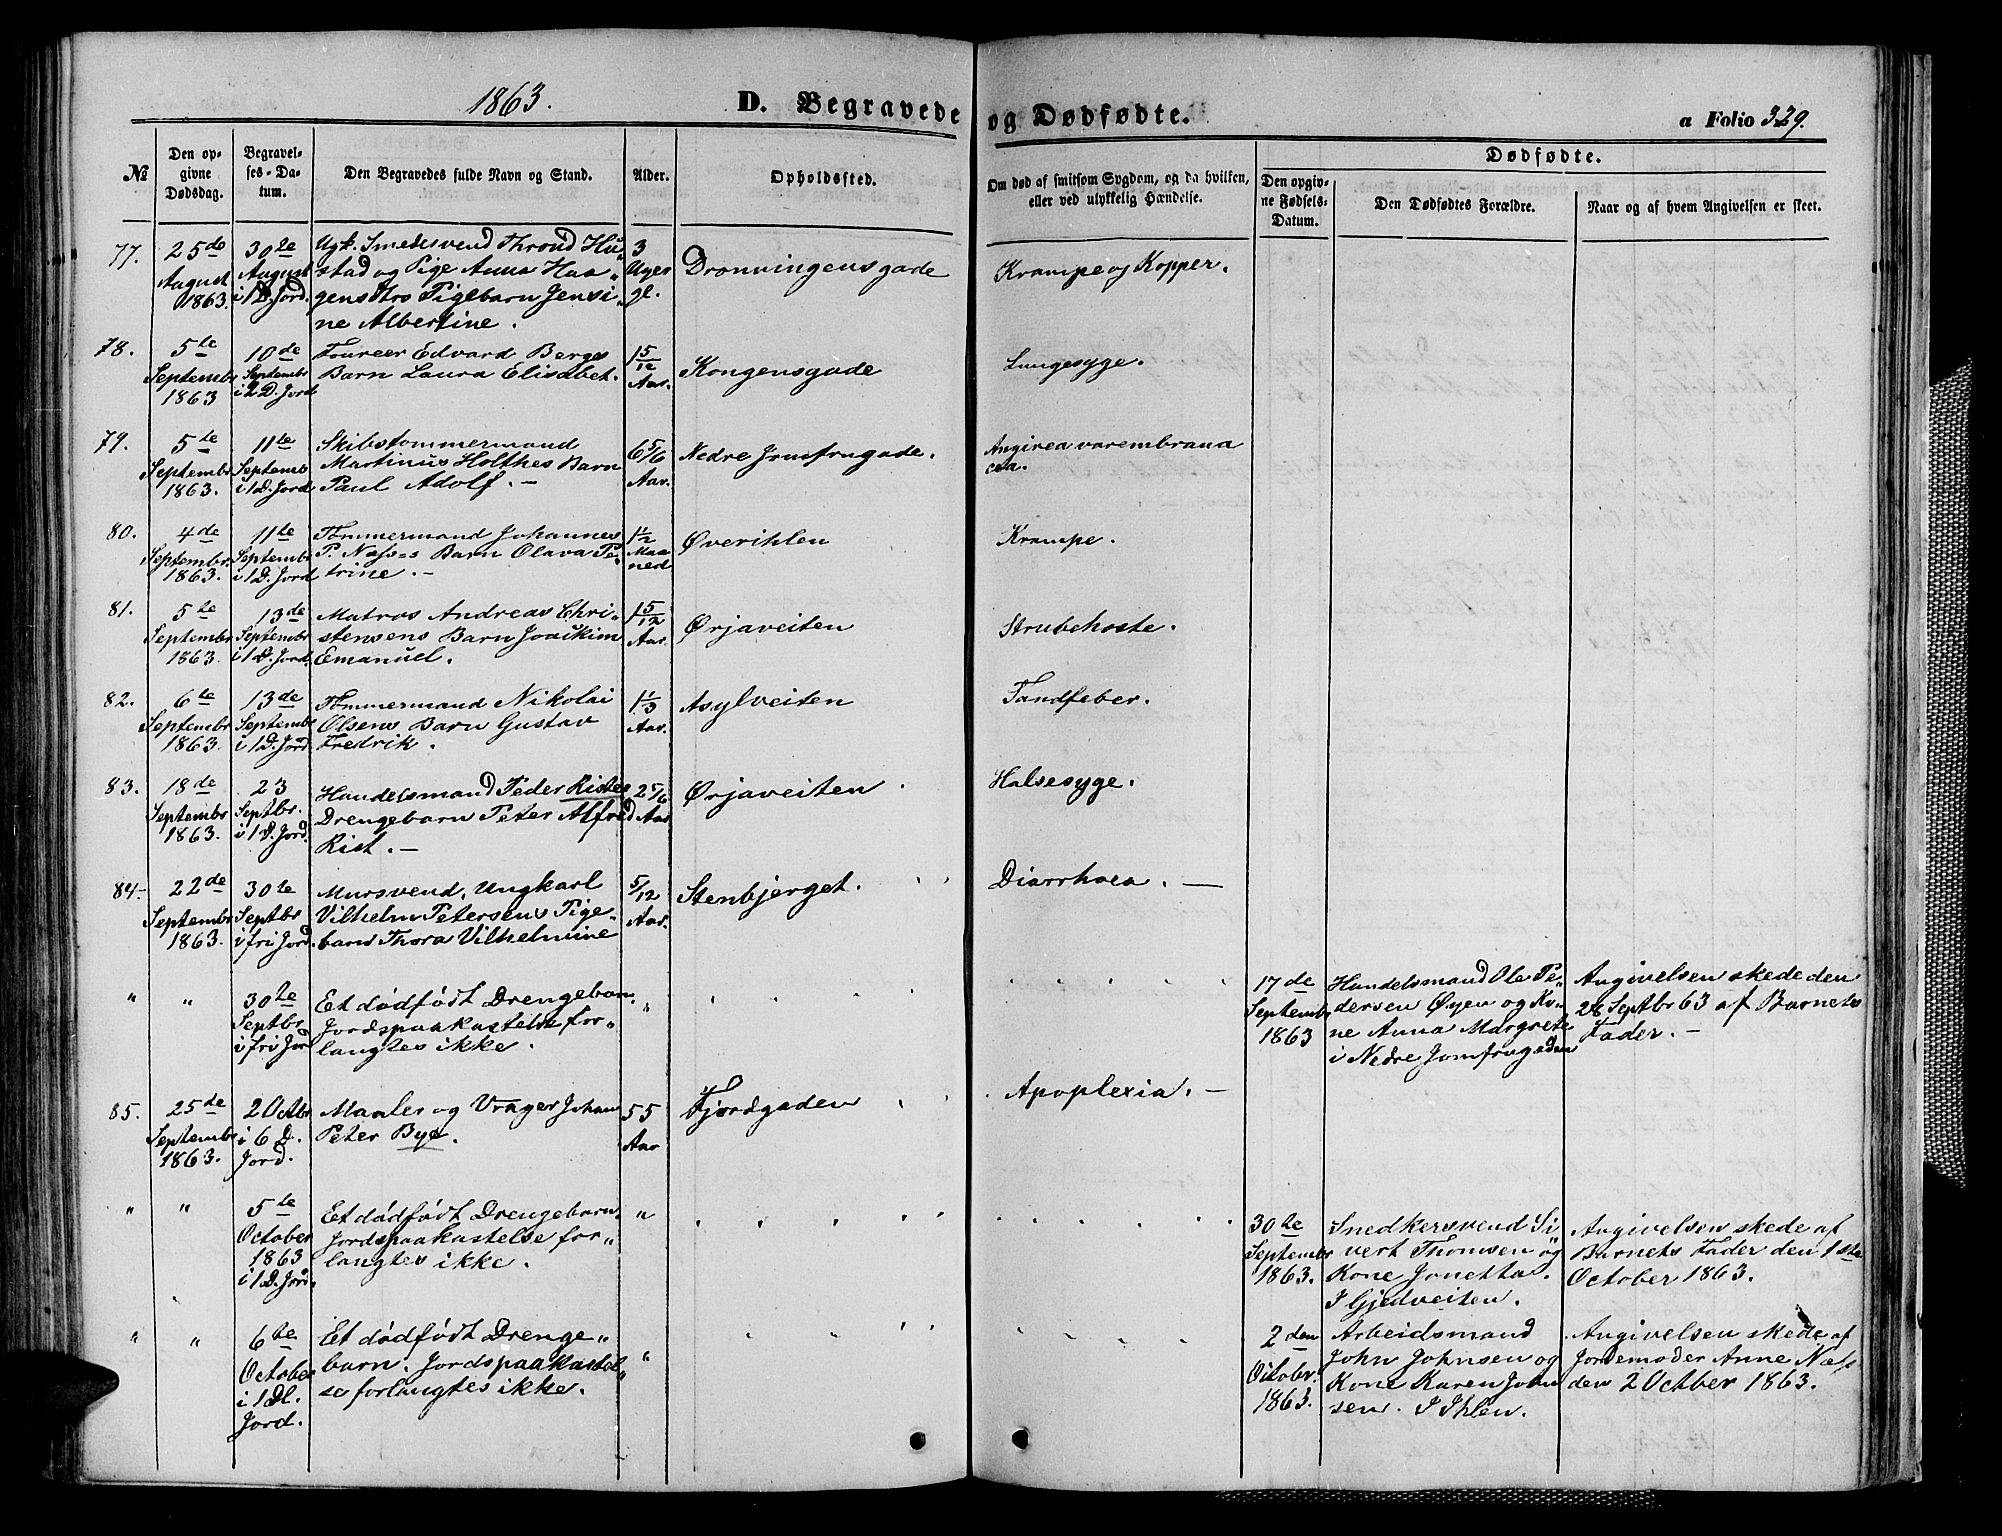 1863.
D. Begravede og Dødfødte.
a Folio 329.
№
Den opgivne Dødsdag.
Begravelses-Datum.
Den Begravedes fulde Navn og Stand.
Alder.
Opholdssted.
Om død af smitsom Sygdom, og da hvilken, eller ved ulykkelig Hændelse.
Dødfødte.
Den opgivne Fødsels-Datum.
Den Dødfødtes Forældre.
Naar og af hvem Angivelsen er skeet.
77.
25de
August
1863.
30te
August
i 1 D. Jord.
Ugk. Smedesvend Thrond Hu„
stad og Pige Anna Haa„
gensdtrs Pigebarn Jensi„
ne Albertine.
3
Uger
gl.
Dronningensgade
Krampe og Kopper.
78.
5te
Septembr
1863
10de
Septembr
i 2 D. Jord
Foureer Edvard Bergs
Barn Laura Elisabet.
1 5/12
Aar.
Kongensgade
Lungesyge.
79.
5te
Septembr
1863.
11te
Septemb
i 1 D. Jord
Skibstømmermand
Martinus Holthes Barn
Paul Adolf. —
6 5/6
Aar.
Nedre Jomfrugade.
Angirea varembrana
cea.
80.
4de
Septembr.
1863.
11te
Septembr
i 1 D. Jord
Tømmermand Johannes
P. Næss's Barn Olava Pe„
trine. —
1 1/2
Maa
ned
Øverihlen
Krampe.
81.
5te
Septembr
1863.
13de
Septembr
i 1 D. Jord.
Matros Andreas Chri„
stensens Barn Joakim
Emanuel.
1 5/12
Aar.
Ørjaveiten
Strubehoste.
82.
6te
Septembr
1863.
13de
Septembr
i 1 D. Jord.
Tømmermand Nikolai
Olsens Barn Gustav
Fredrik.
1 1/3
Aar.
Asylveiten
Tandfeber.
83.
18de
Septembr
1863.
23
Septbr.
i 1 D. Jord.
Handelsmand Peder Ristes
Drengebarn Peter Alfred
Rist. —
2 5/6
Aar
Ørjaveiten
Halsesyge.
84.
22de
Septembr
1863.
30te
Septbr
i fri Jord.
Mursvend, Ungkarl
Vilhelm Petersens Pige„
barn Thora Vilhelmine
5/12
Aar.
Stenbjerget.
Diarrhoea. —
„
„
30te
Septbr
i fri Jord
Et dødfødt Drengebarn.
Jordspaakastelse for„
langtes ikke.
„
17de
Septembr
1863
Handelsmand Ole Pe„
dersen Øyen og Ko„
ne Anna Margrete
i Nedre Jomfrugaden
Angivelsen skede den
28 Septbr 63 af Barnets
Fader. —
85.
25de
Septembr
1863.
2 Octbr
i 6 D.
Jord.
Maaler og Vrager Johan
Peter Bye.
55
Aar
Fjordgaden
Apoplexia. —
„
„
5te
October
1863
i 1 D. Jord.
Et dødfødt Drengebarn.
Jordspaakastelse for„
langtes ikke.
„
30te
Septembr
1863.
Snedkersvend Si„
vert Thomsen og
Kone Jonetta.
I Gjedveiten.
Angivelsen skede af
Barnets Fader den 1ste
October 1863.
„
„
6te
October
i 1 Dl.
Jord.
Et dødfødt Drenge„
barn. Jordspaakastel„
se forlangtes ikke.
„
2den
Octobr.
1863.
Arbeidsmand
John Johnsen og
Kone Karen John
sen. I Ihlen.
Angivelsen skede af
Jordemoder Anne Næss
den 2 October 1863.